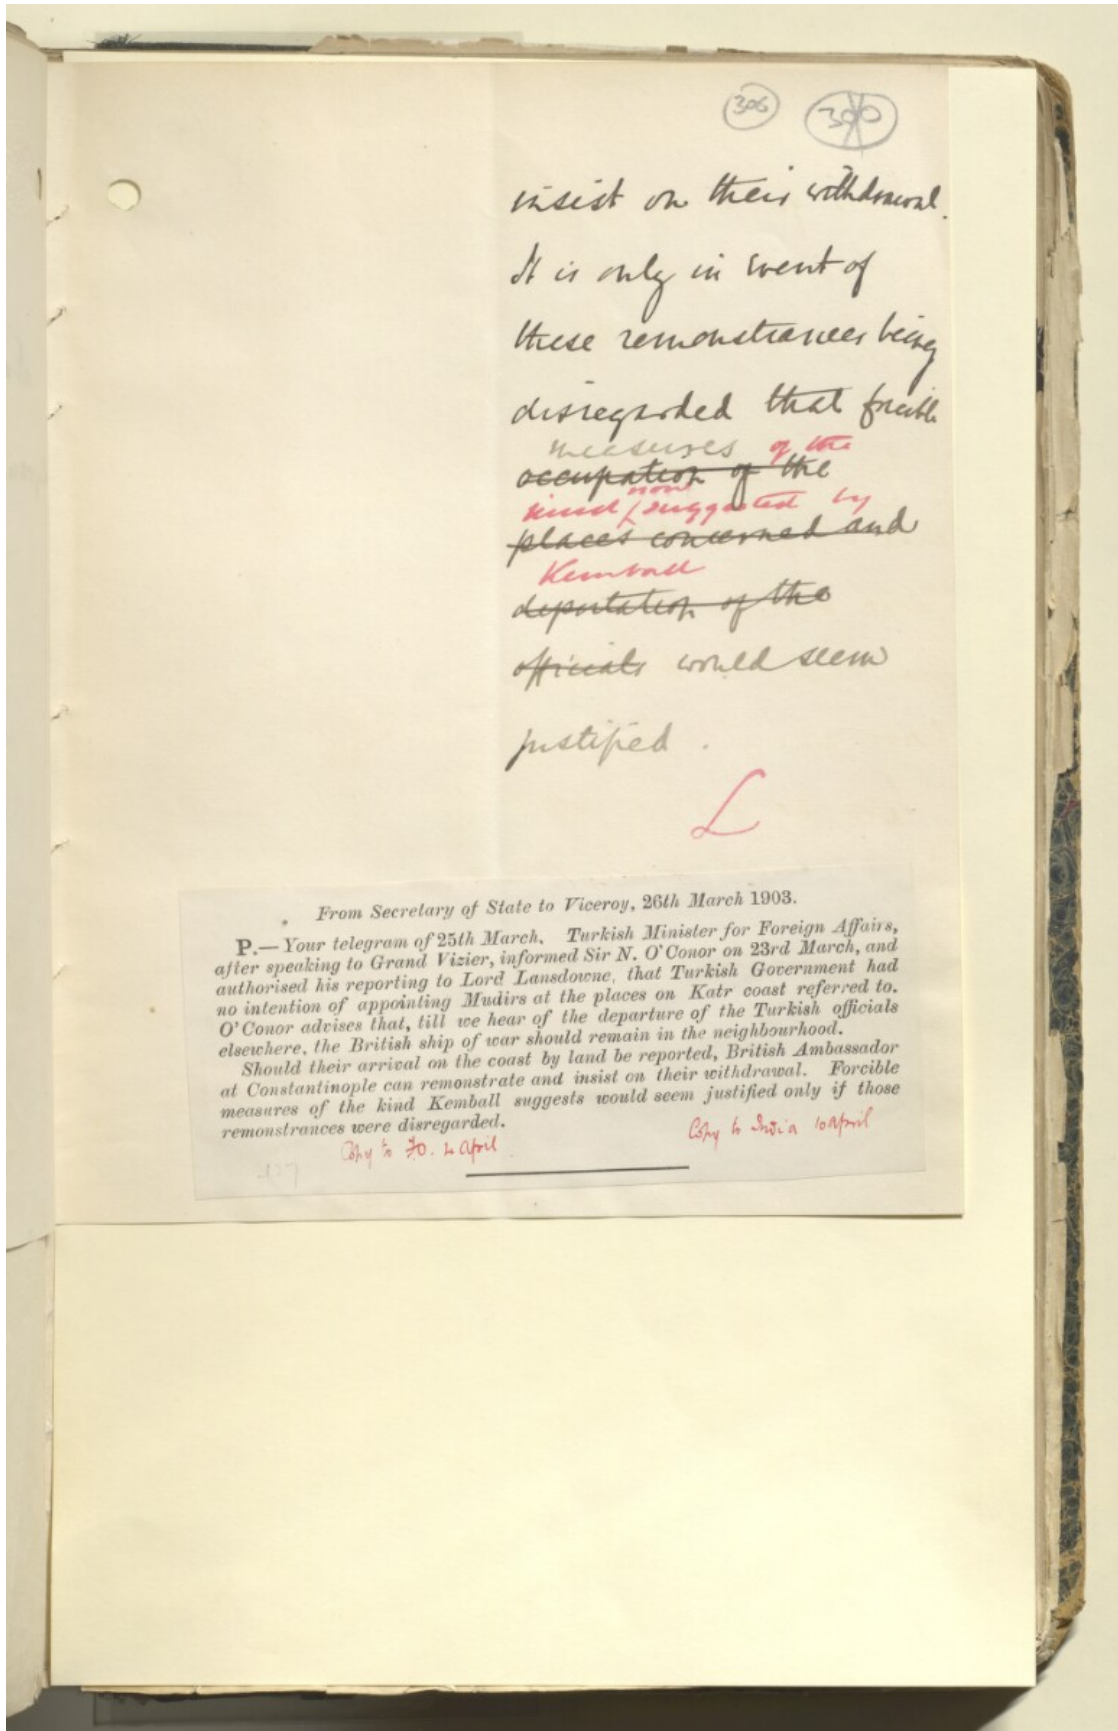 306 300
insist on their withdrawal.
It is only in event of
these remonstrances being
disregarded that forcible
measures of the
occupation of the
now
kind suggested by
places concerned and
Kemball
deportation of the
officials would seem
justified.
L
From Secretary of State to Viceroy, 26th March 1903.
P.—Your telegram of 25th March. Turkish Minister for Foreign Affairs,
after speaking to Grand Vizier, informed Sir N. O'Conor on 23rd March, and
authorised his reporting to Lord Lansdowne, that Turkish Government had
no intention of appointing Mudirs at the places on Katr coast referred to.
O'Conor advises that, till we hear of the departure of the Turkish officials
elsewhere, the British ship of war should remain in the neighbourhood.
Should their arrival on the coast by land be reported, British Ambassador
at Constantinople can remonstrate and insist on their withdrawal. Forcible
measures of the kind Kemball suggests would seem justified only if those
remonstrances were disregarded.
Copy to India 10 April
Copy to FO. 2 April